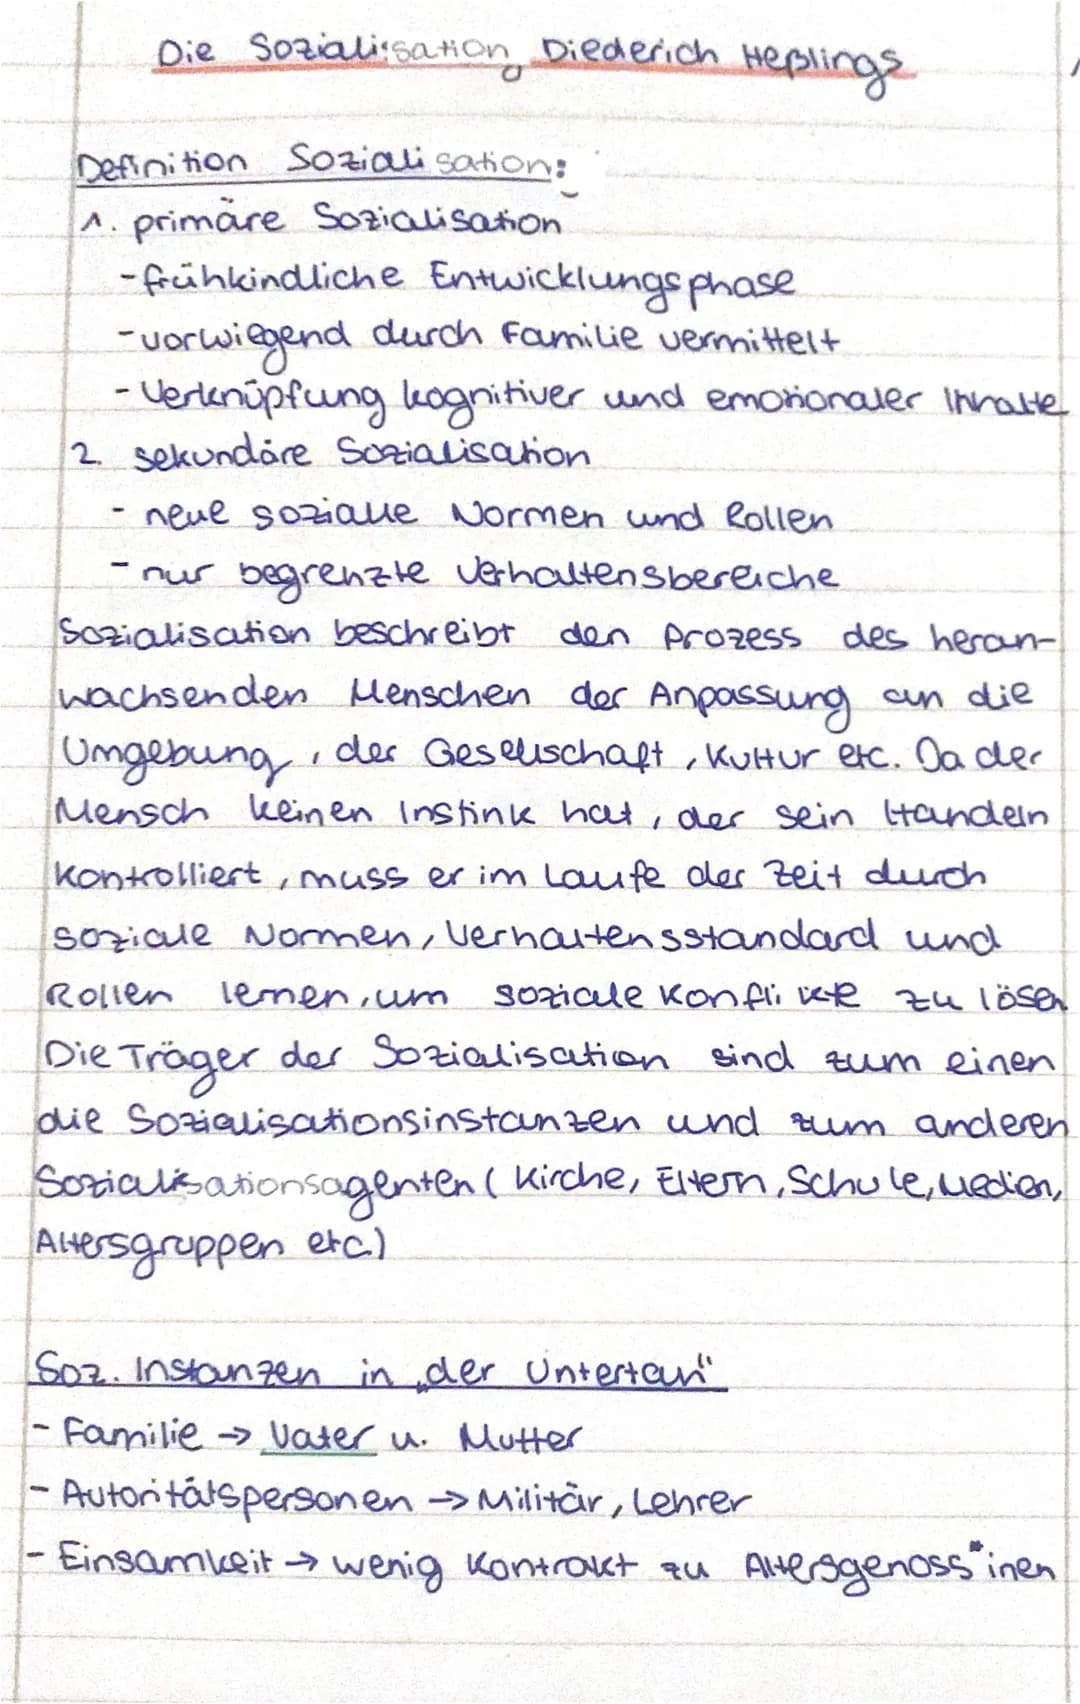 Die Sozialisation Diederich Heßlings
Definition Sozialisation:
1. primäre Sozialisation
- frühkindliche Entwicklungsphase
- vorwiegend durch Familie vermittelt
- Verknüpfung kognitiver und emotionaler Inhalte
2. sekundäre Sozialisation
- neue soziale Normen und Rollen
- nur begrenzte Verhaltensbereiche
Sozialisation beschreibt den Prozess des heran-
wachsenden Menschen der Anpassung an die
Umgebung, der Gesellschaft, Kultur etc. Da der
Mensch keinen Instink hat, der sein Handeln
kontrolliert, muss er im Laufe der Zeit durch
soziale Normen, Verhaltensstandard und
Rollen lernen, um soziale Konflikte zu lösen
Die Träger der Sozialisation sind zum einen
die Sozialisationsinstanzen und zum anderen
Sozialisationsagenten (Kirche, Eltern, Schule, Medien,
Altersgruppen etc.)
Soz. Instanzen in „der Untertan"
- Familie → Vater u. Mutter
- Autoritätspersonen → Militär, Lehrer
- Einsamkeit → wenig Kontrakt zu Altersgenoss*inen